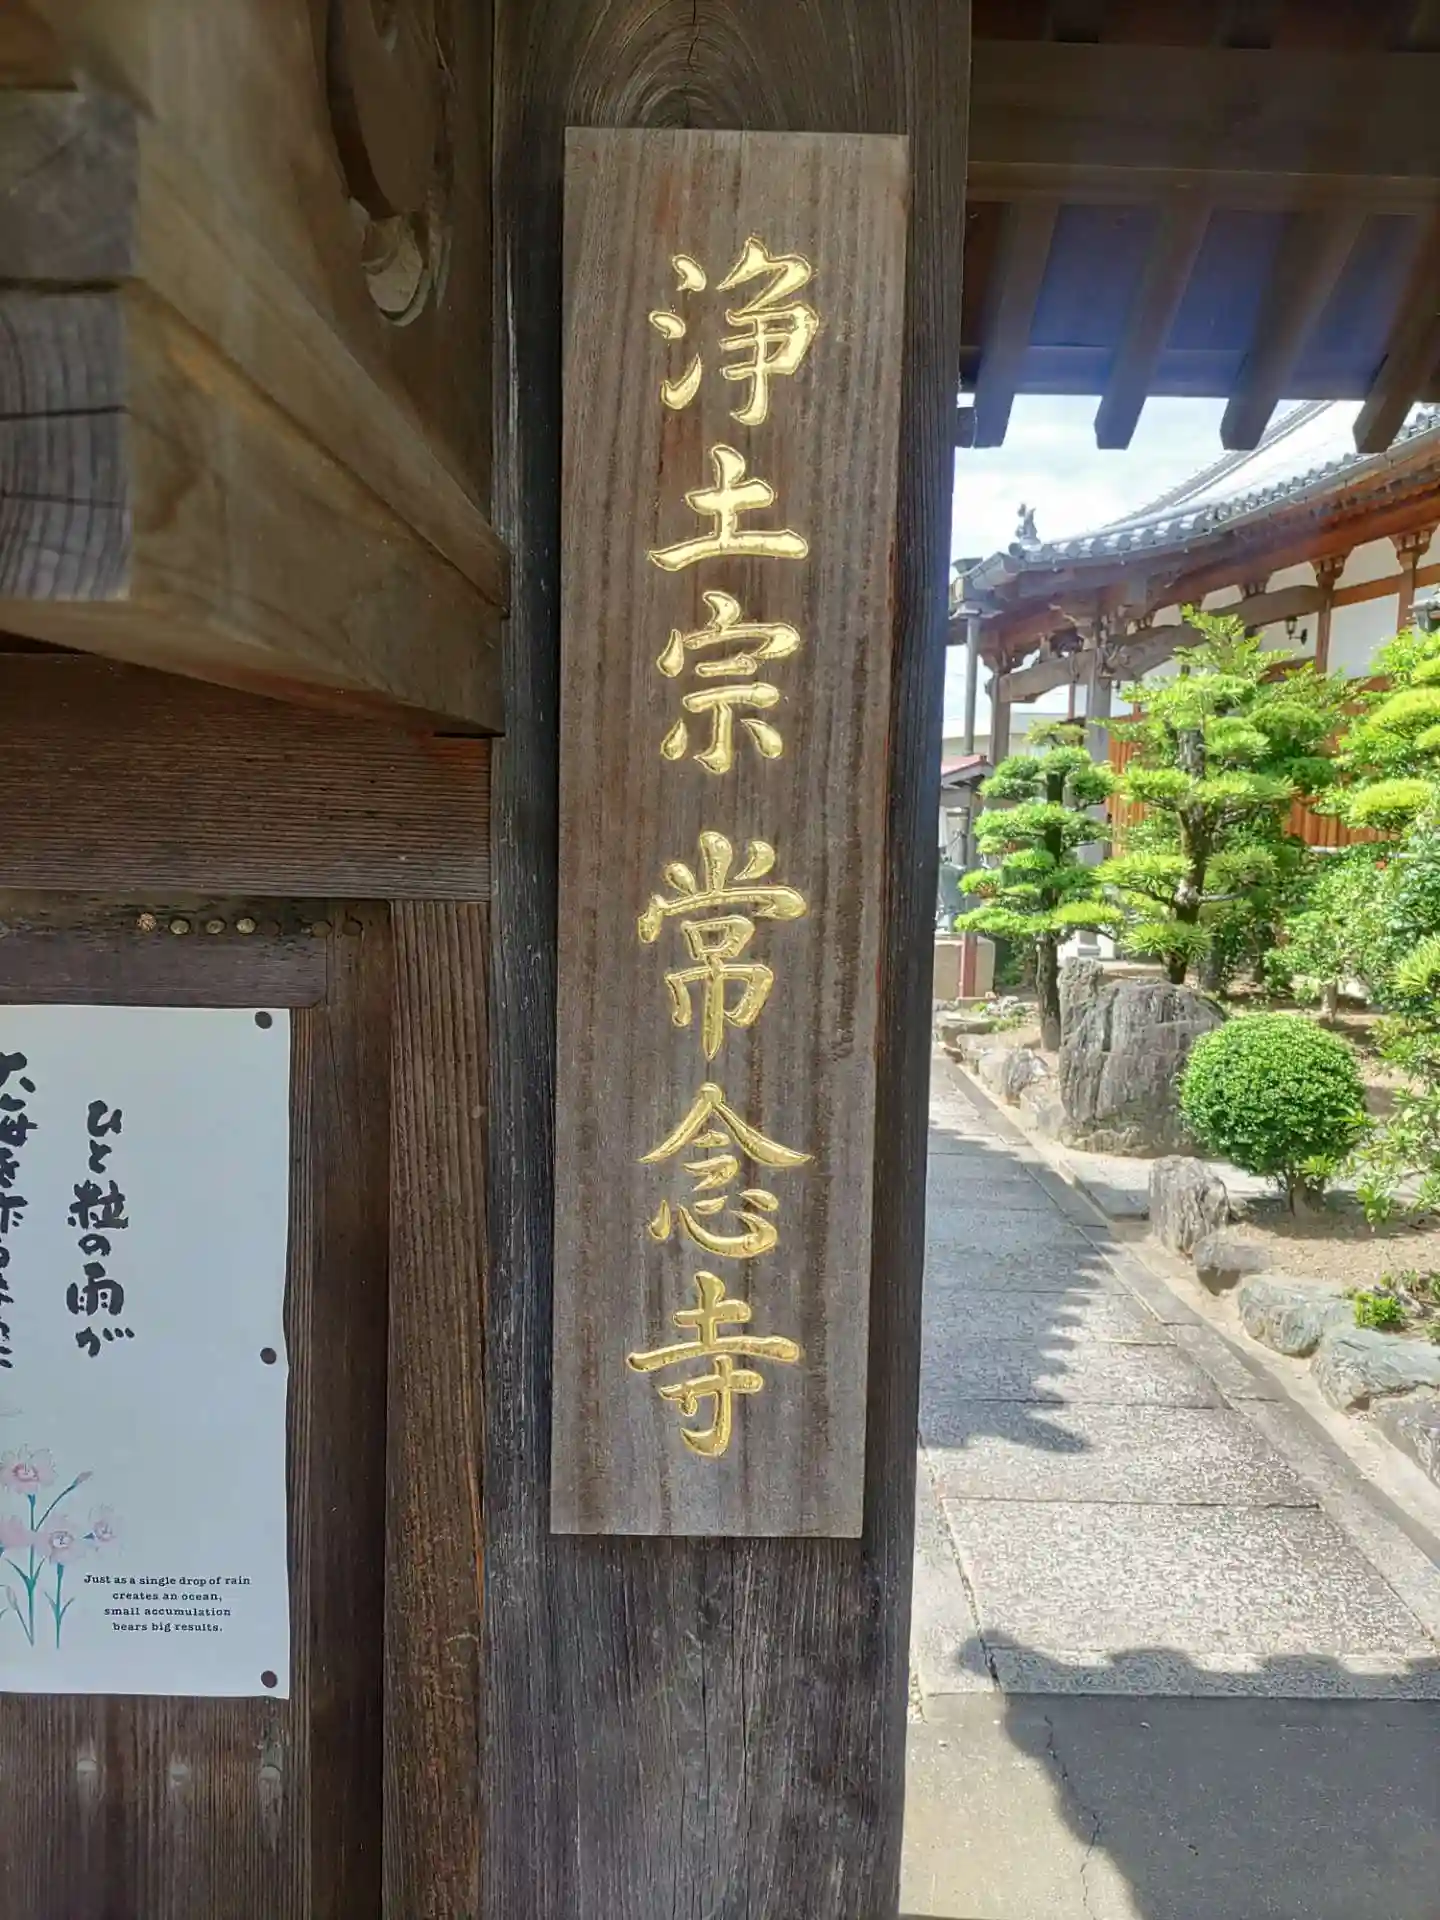 浄土宗 常念寺
ひと粒の雨が
大海を作るように
Just as a single drop of rain
creates an ocean,
small accumulation
bears big results.